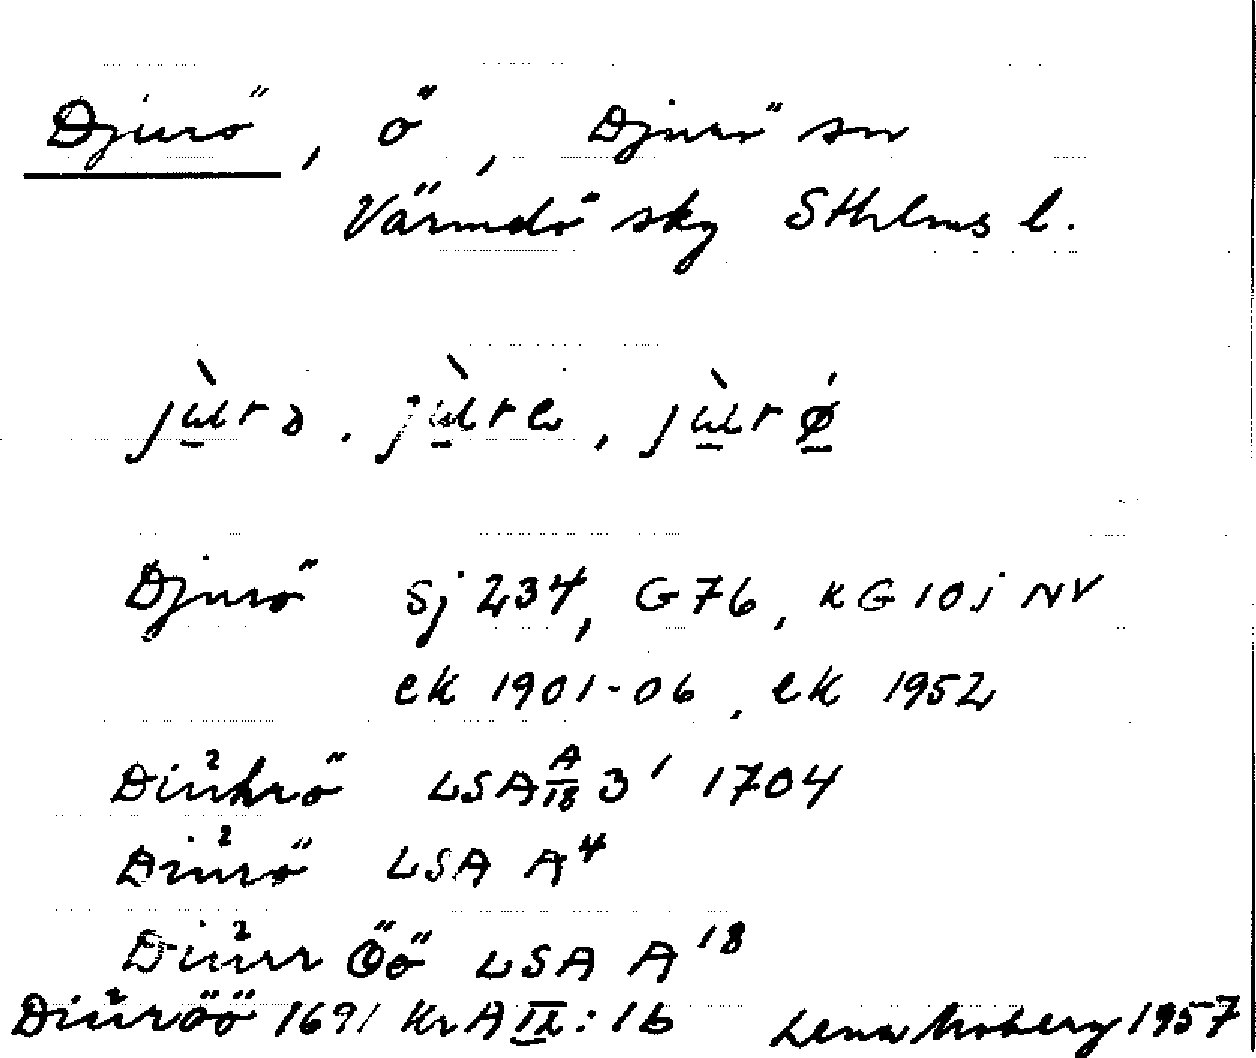 Djurö, ö, Djurö sn
Värmdö sky Sthlms l.
Djurö Sj 234, G 76, KG 10j NV
ek 1901-06, ek 1952
Diůhrö LSA A/18 3' 1704
Diůrö LSA A⁴
Diůrr Öö LSA A¹⁸
Diůröö 1691 KrA IX:16 Lena Moberg 1957